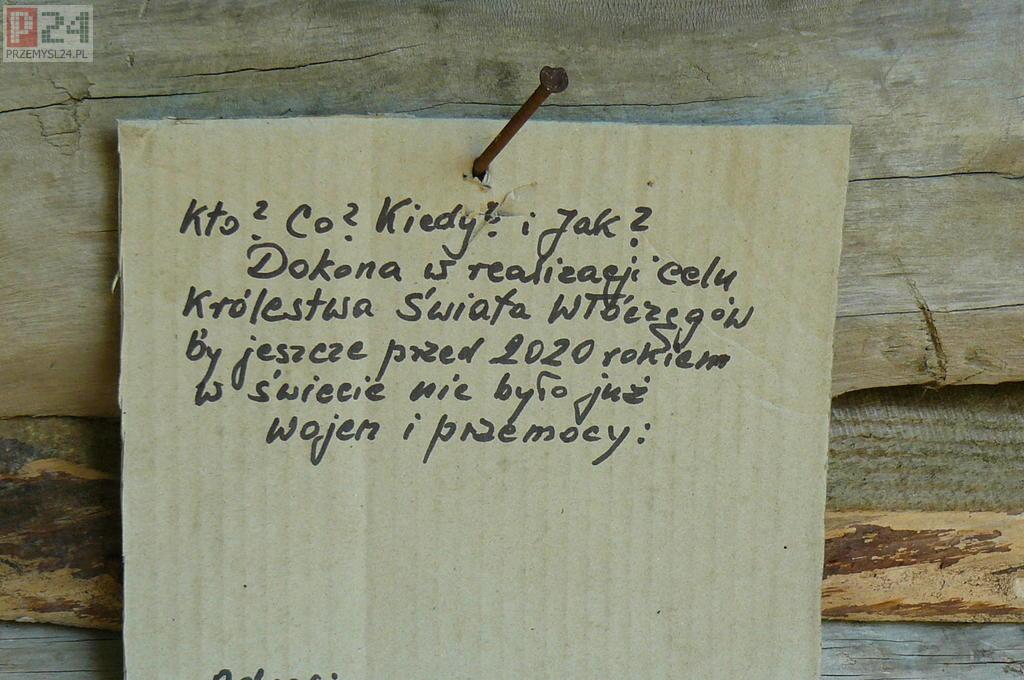 P24
PRZEMYSL24.PL
Kto? Co? Kiedy? i Jak?
Dokona w realizacji celu
Królestwa Świata Włóczęgów
By jeszcze przed 2020 rokiem
w świecie nie było już
wojen i przemocy: